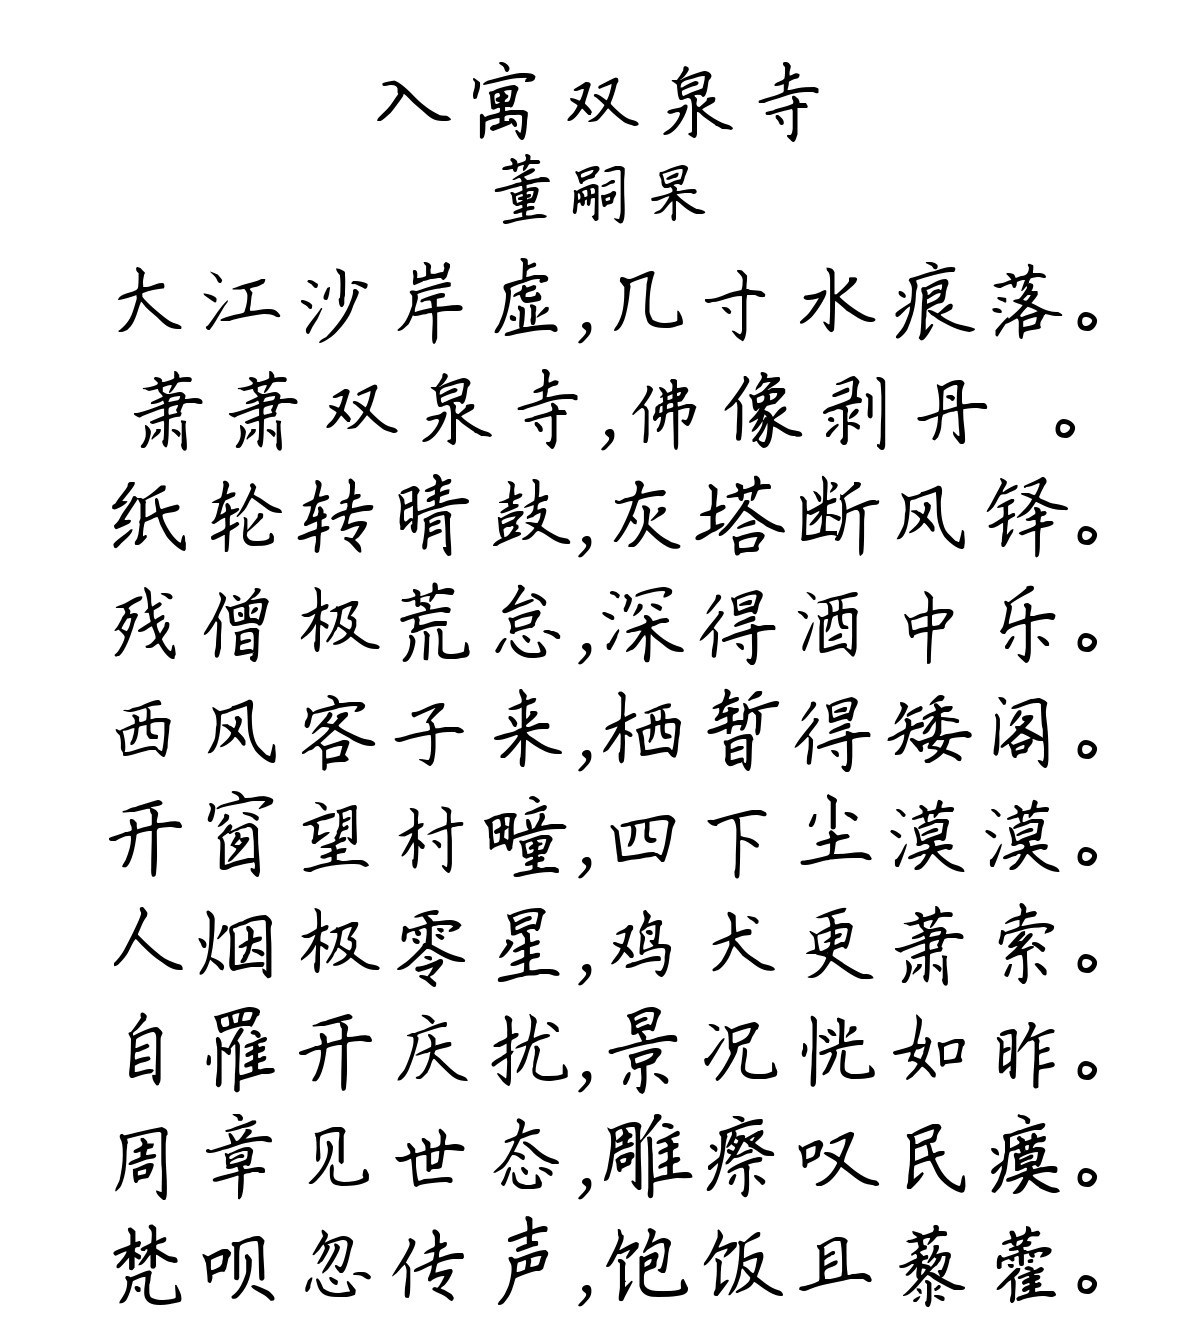 入寓双泉寺
董嗣杲
大江沙岸虚,几寸水痕落。
萧萧双泉寺,佛像剥丹 。
纸轮转晴鼓,灰塔断风铎。
残僧极荒怠,深得酒中乐。
西风客子来,栖暂得矮阁。
开窗望村疃,四下尘漠漠。
人烟极零星,鸡犬更萧索。
自罹开庆扰,景况恍如昨。
周章见世态,雕瘵叹民瘼。
梵呗忽传声,饱饭且藜藿。